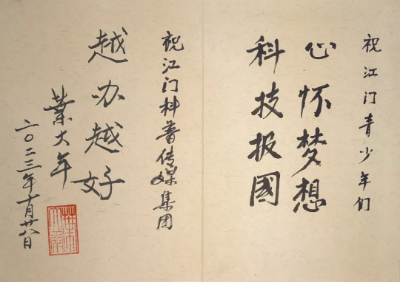 祝江门青少年们
心怀梦想
科技报國
祝江门科普传媒集团
越办越好
葉大年
二〇二三年十月廿八日